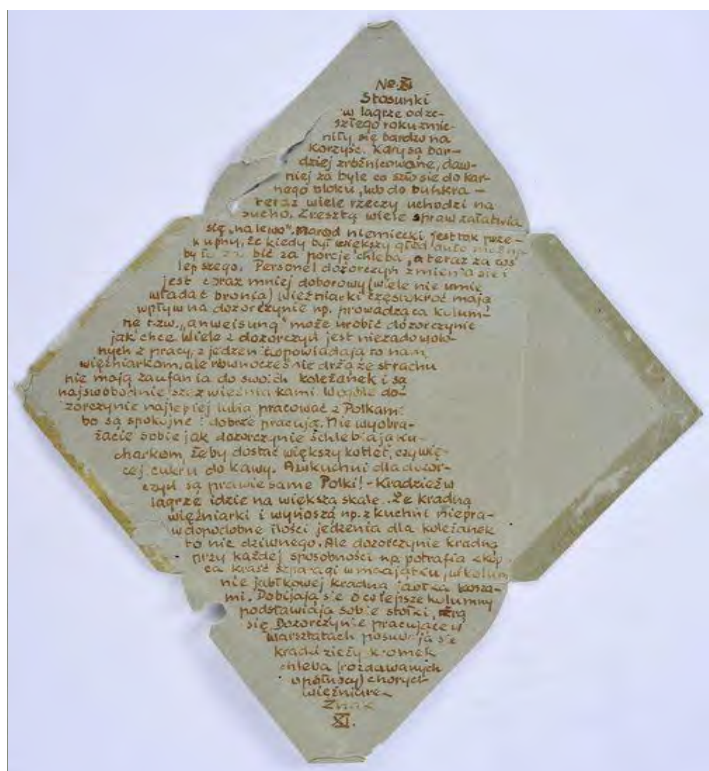 No. XI
Stosunki
w lagrze od ze-
szłego roku zmie-
niły się bardzo na
korzyść. Kary są bar-
dziej zróżnicowane, daw-
niej za byle co szło się do kar-
nego bloku, lub do bunkra -
teraz wiele rzeczy uchodzi na
sucho. Zresztą wiele spraw załatwia
się „na lewo". Naród niemiecki jest tak prze-
kupny, że kiedy był większy głód można
było za porcję chleba, a teraz za coś
lepszego. Personel dozorczyń zmienia się i
jest coraz mniej doborowy (wiele nie umie
władać bronią) więźniarki częstokroć mają
wpływ na dozorczynie np. prowadząca kolum-
nę tzw. „anweisung" może urobić dozorczynię
jak chce. Wiele z dozorczyń jest niezadowolo-
nych z pracy, z jedzenia opowiadają to nam,
więźniarkom, ale równocześnie drżą ze strachu
nie mają zaufania do swoich koleżanek i są
najswobodniejsze z więźniarkami. Wogóle do-
zorczynie najlepiej lubią pracować z Polkami
bo są spokojne i dobrze pracują. Nie wyobra-
żacie sobie jak dozorczynie schlebiają ku-
charkom, żeby dostać większy kotlet, czy wię-
cej cukru do kawy. A w kuchni dla dozor-
czyń są prawie same Polki! - Kradzież w
lagrze idzie na większą skalę. Że kradną
więźniarki i wynoszą np. z kuchni niepra-
wdopodobne ilości jedzenia dla koleżanek
to nic dziwnego. Ale dozorczynie kradną
przy każdej sposobności np. potrafią
kraść szparagi w majątku, w kolum-
nie jabłkowej kradną jabłka kosza-
mi. Dobijają się o co lepsze kolumny
podstawiają sobie stołki, żrą
się. Dozorczynie pracujące w
warsztatach posuwają się
kradzieży kromek
chleba (rozdawanych
o północy) chorych
więźniarek
Znak
XI.